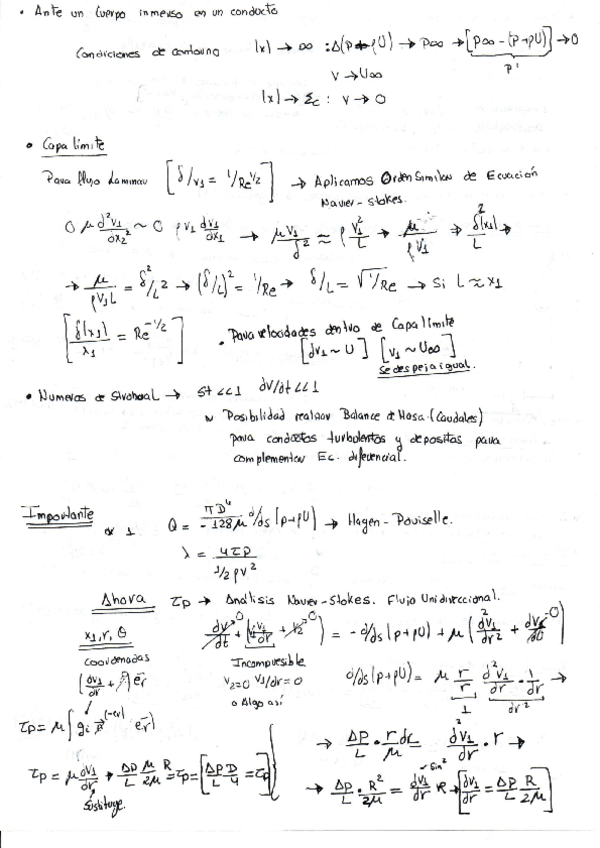 • Ante un Cuerpo inmerso en un conducto
Condiciones de contorno |x| → ∞ : Δ(p+ρU) → p∞ → [p∞ - (p+ρU)] → 0
p'
V → U∞
|x| → Σc : V → 0
• Capa limite
Para flujo Laminar [δ/v1 = 1/Re^1/2] → Aplicamos Orden Similar de Ecuación
Navier-Stokes.
μ d²v1/dx2² ~ ρ v1 dv1/dx1 → μ v1/δ² ≈ ρ v1²/L → μ/ρV1 → δ²(x1)/L →
→ μ/ρV1L = δ²/L² → (δ/L)² = 1/Re → δ/L = √1/Re → Si L ≈ x1
[δ(x1)/x1 = Re^-1/2] • Para velocidades dentro de Capa limite
[dv1 ~ U] [v1 ~ U∞]
se despeja igual.
• Numeros de Strohoal → St <<1 dV/dt <<1
Posibilidad realizar Balance de Masa (Caudales)
para conductos turbulentos y depositos para
complementar Ec. diferencial.
Importante 1 Q = πD⁴/-128μ d/ds (p+ρU) → Hagen-Pouiselle.
λ = 4τp / 1/2 ρv²
Ahora τp → Análisis Navier-Stokes. Flujo Unidireccional.
x1, r, θ dv/dt + (v1 v1/dr + v2) = -d/ds (p+ρU) + μ (d²v1/dr² + dv/dθ)
coordenadas Incompresible d/ds (p+ρU) = μ r/r d²v1/dr · 1/dr →
(dv1/dr + ) er v2=0 v1/dr = 0 1 dr²
o Algo así
τp = μ ∫ (-er) er) → ΔP/L · r dr/μ d²v1/dr · r →
τp = μ dv1/dr → ΔP/L μ R/2μ = τp = [ΔP/L D/4 = τp] → ΔP/L · R²/2μ = dv1/dr R → [dv1/dr = ΔP/L R/2μ]
Sustituye.